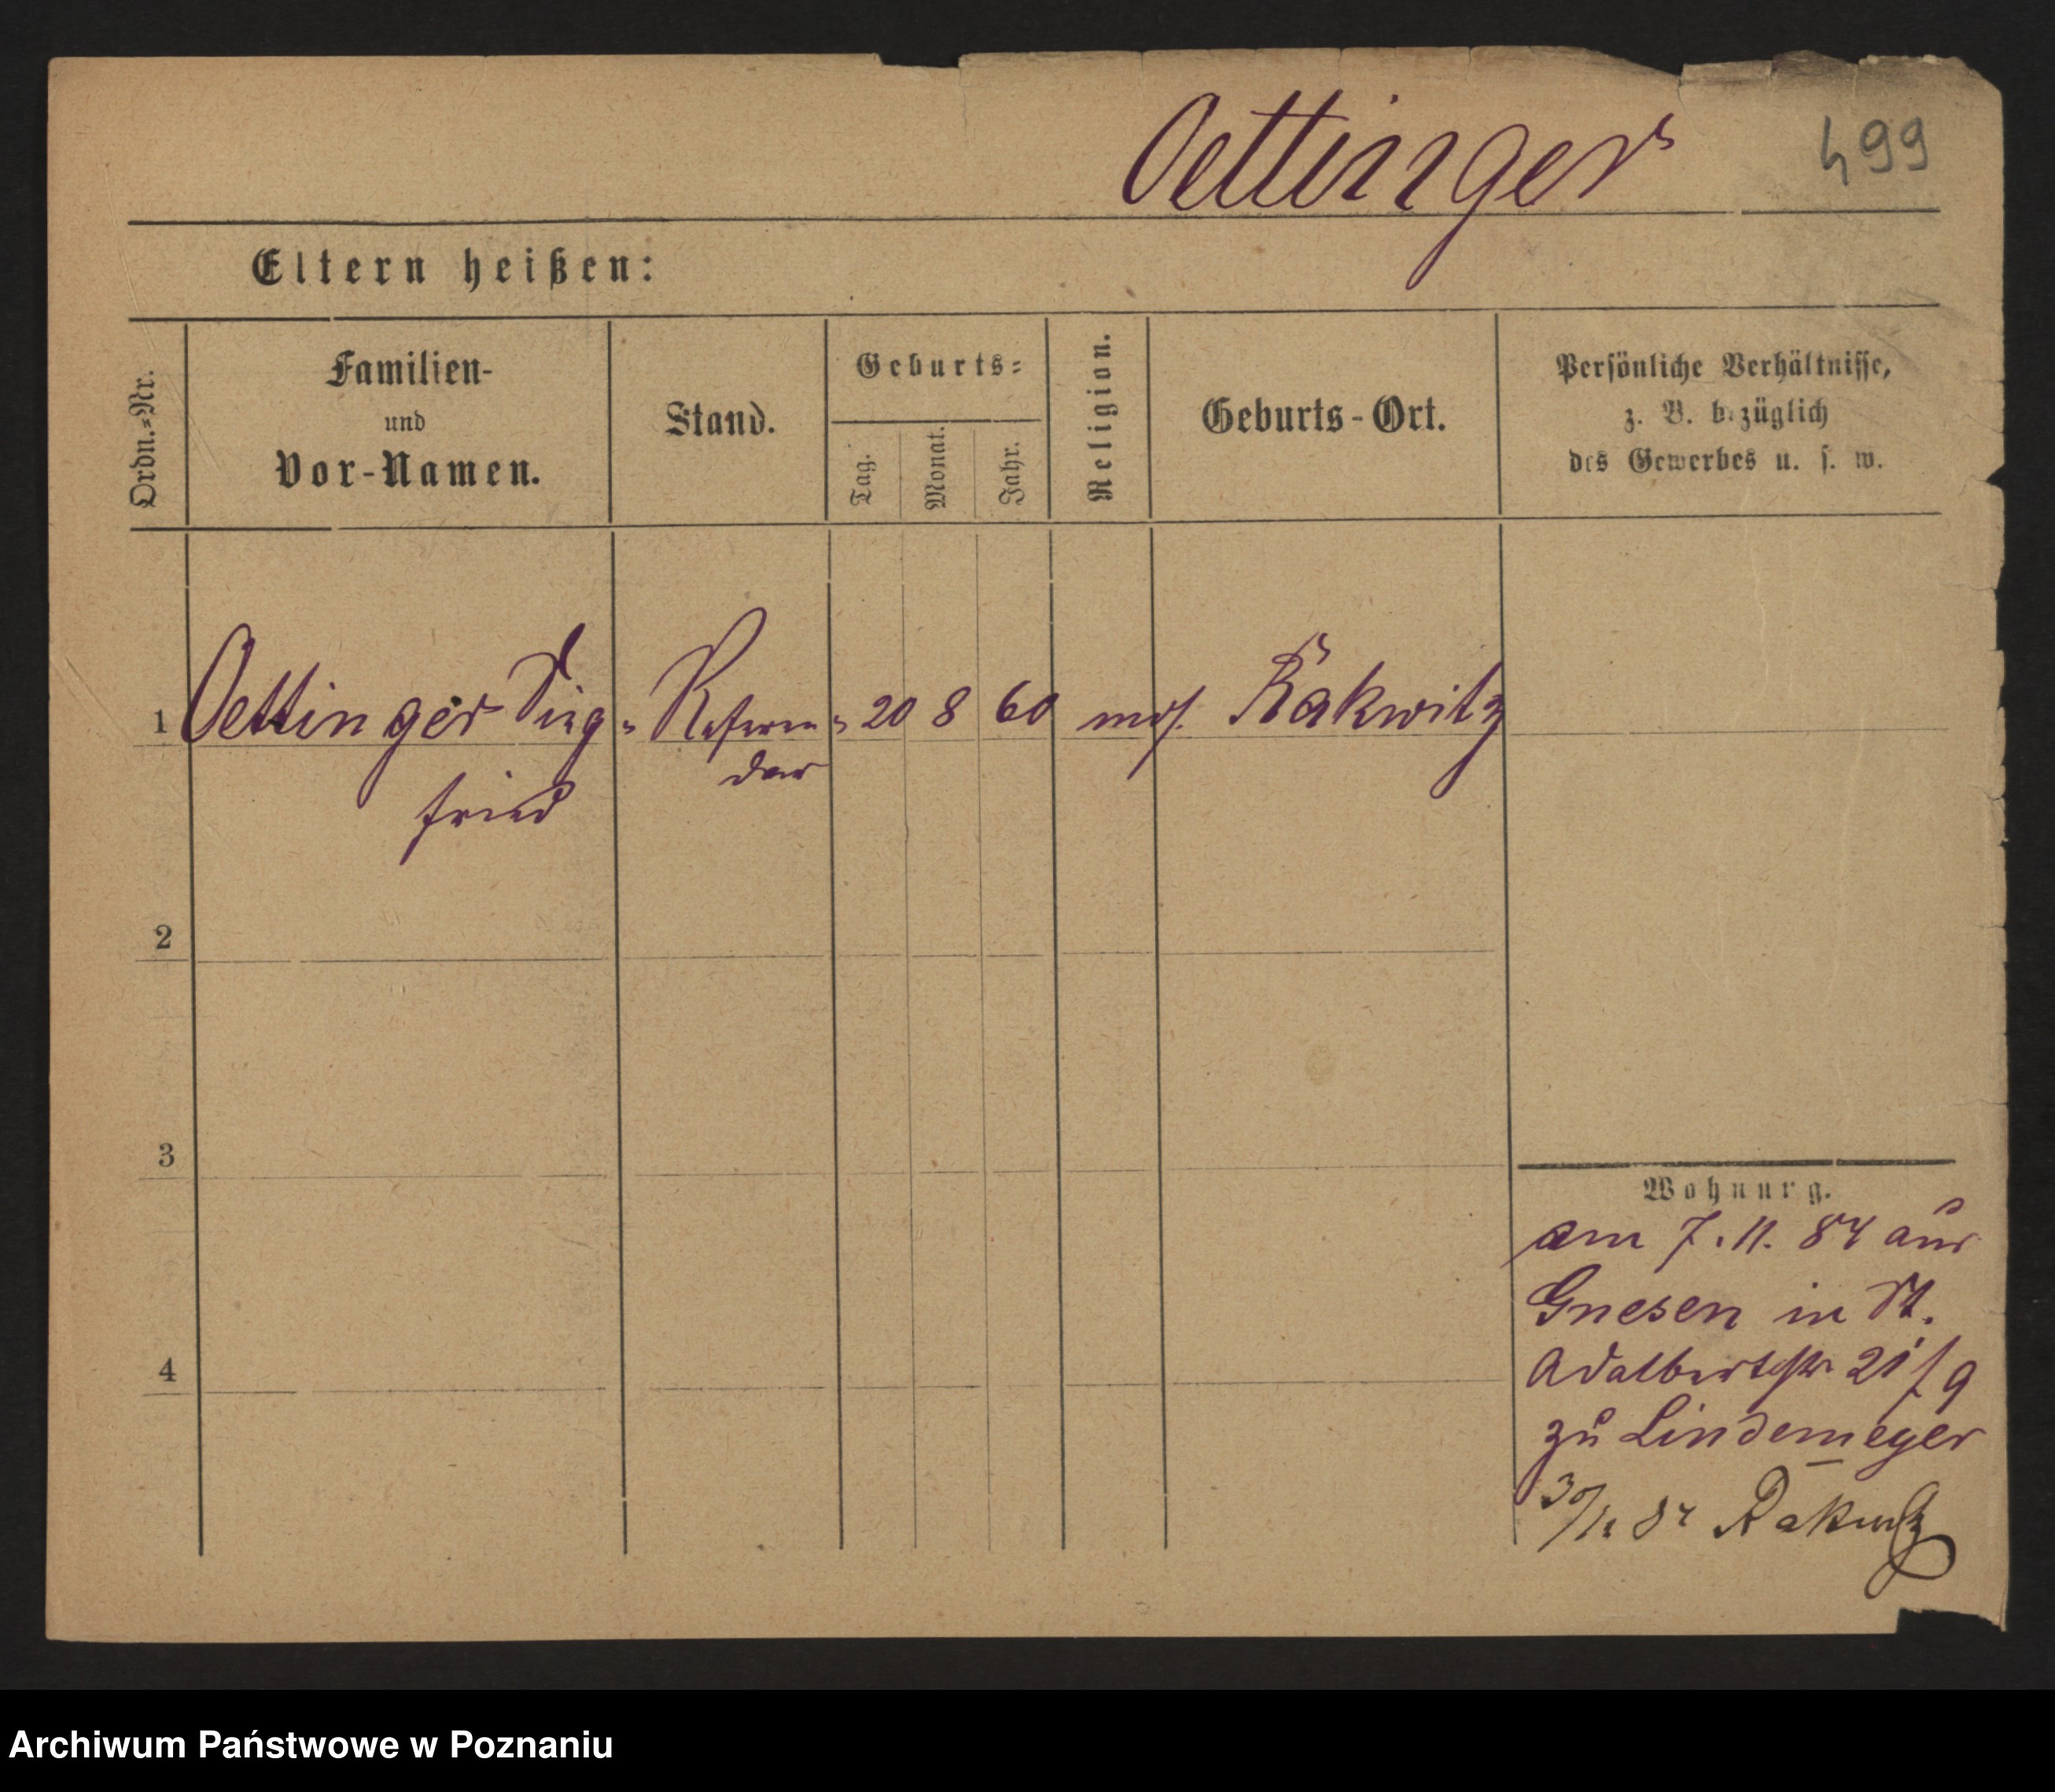 Oettinger 499
Eltern heißen:
Ordn.-Nr.
Familien-
und
Vor-Namen.
Stand.
Geburts-
Tag.
Monat.
Jahr.
Religion.
Geburts-Ort.
Persönliche Verhältnisse,
z. B. bezüglich
des Gewerbes u. s. w.
1 Oettinger Sieg- Referen- 20 8 60 mos. Rakwitz
fried dar
2
3
4
Wohnung.
am 7. 11. 84 aus
Gnesen in St.
Adalbertstr 21/9
zu Lindemeyer
30/12 84 Rakwitz
Archiwum Państwowe w Poznaniu